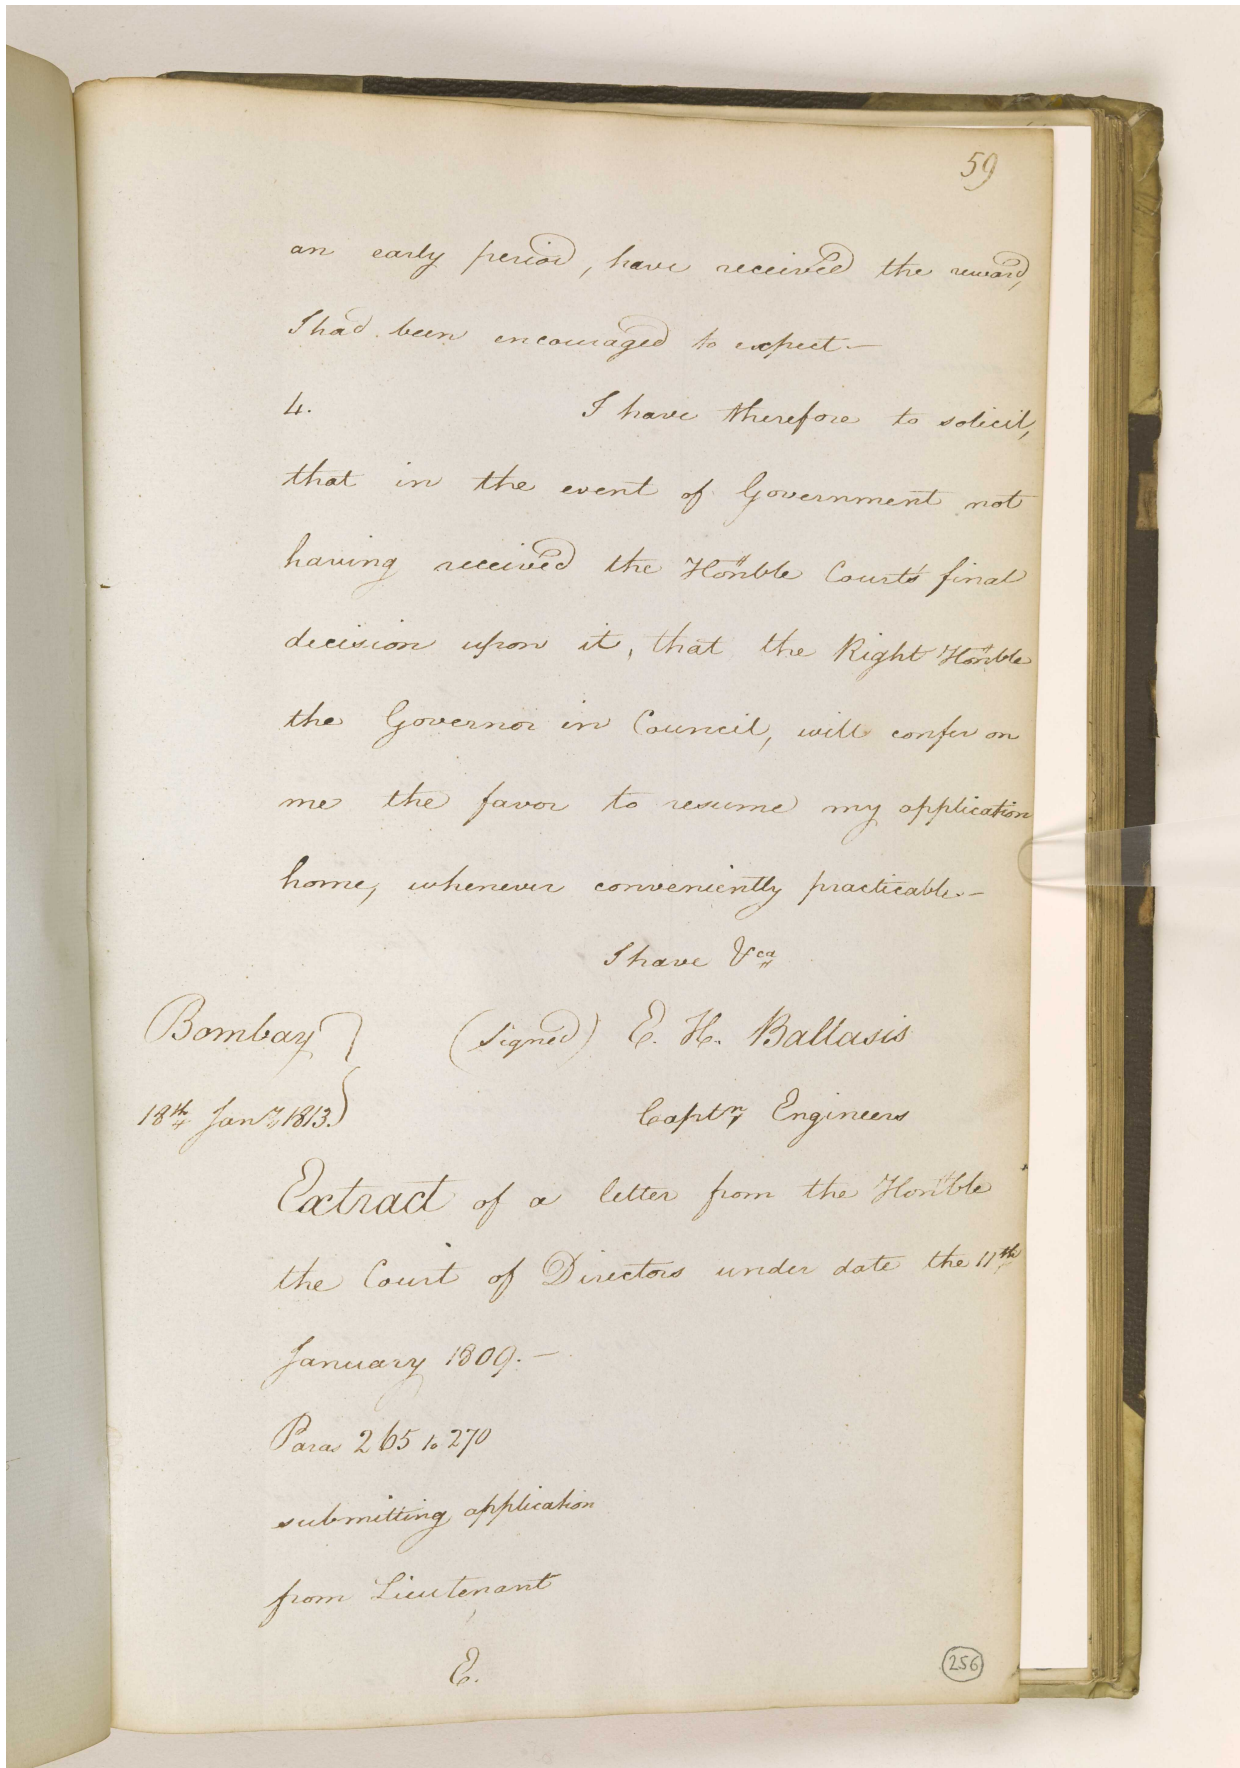 59
an early period, have received the reward,
I had been encouraged to expect.—
4. I have therefore to solicit,
that in the event of Government not
having received the Hon'ble Court's final
decision upon it, that the Right Hon'ble
the Governor in Council, will confer on
me the favor to resume my application
home, whenever conveniently practicable.—
I have &ca
Bombay } (Signed) E. H. Ballasis
18th Jany 1813. } Captn Engineers
Extract of a letter from the Hon'ble
the Court of Directors under date the 11th
January 1809.—
Paras 265 to 270
submitting application
from Lieutenant
E.
256